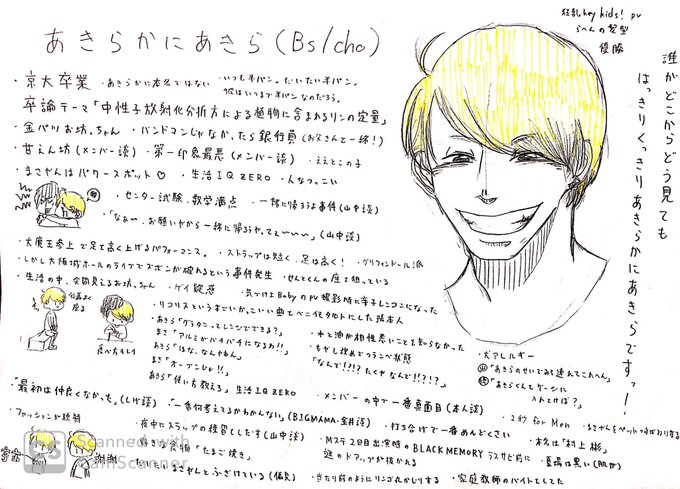 あきらかにあきら(Bs/cho)
狂乱hey kids! pv
らへんの髪型
優勝
誰がどこからどう見ても
はっきりくっきりあきらかにあきらですっー!
・京大卒業 ・あきらかに本名ではない ・いつも半パン。だいたい半パン。
彼はいつまで半パンなのだろう。
卒論テーマ「中性子放射化分析方による植物に含まれるリンの定量」
・金パツお坊ちゃん ・バンドマンじゃなかったら銀行員(お父さんと一緒!)
・甘えん坊(メンバー談) ・第一印象最悪(メンバー談) ・ええとこの子
・まさやんはパワースポット♡ ・生活IQ ZERO ・人なつっこい
・センター試験、数学満点 ・一緒に帰ろうよ事件(山中談)
「なぁ〜、お願いやから一緒に帰ろうや、てぇ〜〜〜」(山中談)
・大魔王参上で足を高く上げるパフォーマンス。 ・ストラップは短く、足は高く! ・グリフィンドール派
・しかし大阪城ホールのライブでズボンが破れるという事件発生 ・せんとくんの座を狙っている
・生活の中、会間見えるお坊ちゃん ・ゲイ疑惑 ・気づけばBabyのPV撮影時に辛子レンコンになった
・リコリスというすごいかっこいい曲をベニ化タルトにした張本人
行儀よく
座る
食べ方キレイ
・あきら「グラタンってレンジでできる?」
まさ「アルミがバチバチになるわ!!」
あきら「ほな、なんやねん」
まさ「オーブンじゃ!!」
あきら「使い方教えろ」 生活IQ ZERO
・水と油が相性悪いことを知らなかった
・もやし炊めでフランベ状態
「なんで!?!? たくや なんで!!?!?」
・犬アレルギー
山「あきらのせいでみて連んでこれへん」
「あきらくんもケージに
入れとけば?」
・「最初は仲良くなかった」(しげ談) ・「一番何考えてるかわかんない」(BIGMAMA・金井談)
・メンバーの中で一番真面目(本人談)
・打ち合けで一番めんどくさい
・2秒 for Men
・本名は「村上 彬」
・ファッションが独特
・夜中にスラップの練習しだす(山中談)
・好きな食物「たまご焼き」
・だいたいまさやんとふざけている(偏見)
・Mステ2回目出演時のBLACK MEMORYラスサビ前に
謎のドアップが抜かれる
・当たり前のようにリンゴ丸かじりする ・家庭教師のバイトしてた
謝謝
CS Scanned with
CamScanner